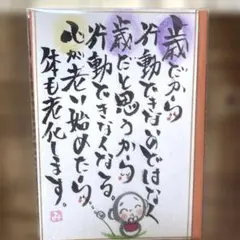 歳だから
行動できないのではなく
歳だと思うから
行動できなくなる
心が老い始めたら、
体も老化します。